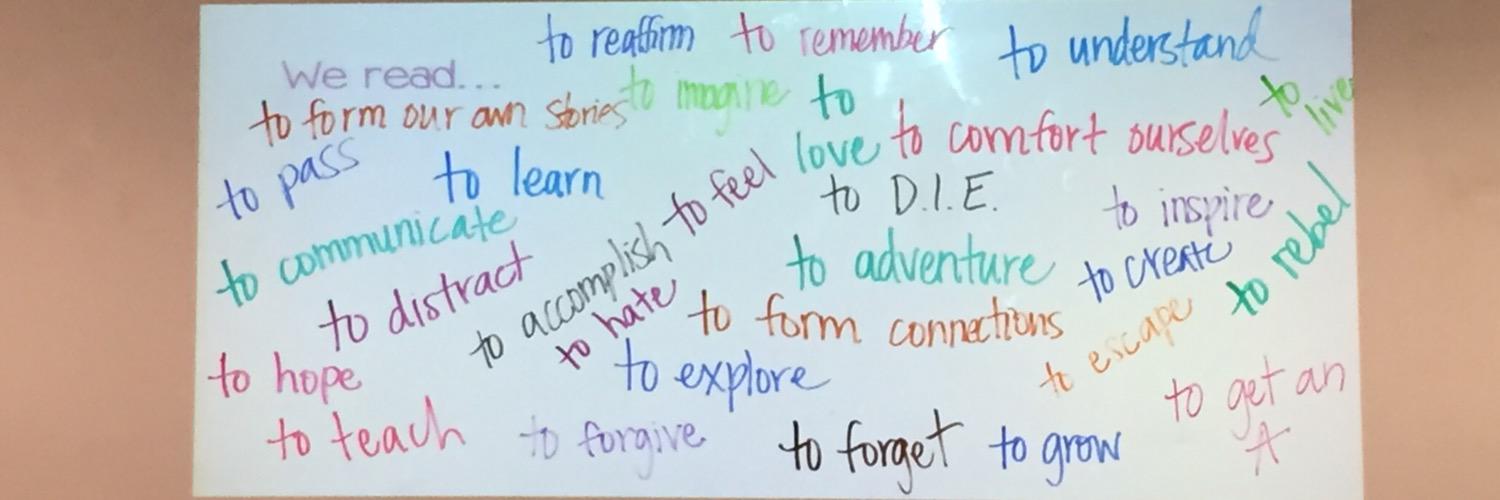 to reaffirm
to remember
to understand
We read...
to imagine
to
love
to live
to form our own stories
to comfort ourselves
to pass
to learn
to feel
to D.I.E.
to inspire
to communicate
to accomplish
to adventure
to create
to rebel
to distract
to hate
to form connections
to escape
to hope
to explore
to get an
A
to teach
to forgive
to forget
to grow